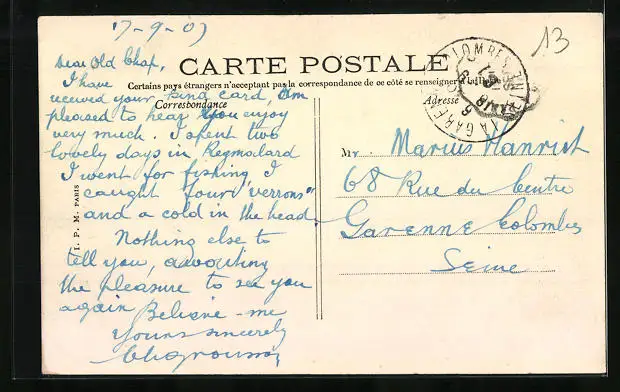 17-9-07
Dear Old Chap,
CARTE POSTALE
Certains pays étrangers n'acceptent pas la correspondance de ce côté se renseigner à la Poste
Correspondance
Adresse
13
I have
received your kind card, Am
pleased to hear you enjoy
very much. I spent two
lovely days in Regmalard
I went for fishing I
caught four "verrons"
and a cold in the head.
Nothing else to
tell you, awaiting
the pleasure to see you
again Believe me
Yours sincerely
I. P. M. PARIS
Mr Marius Hanriot
68 Rue du Centre
Garenne Colombes
Seine
LA GARENNE COLOMBES
SEINE